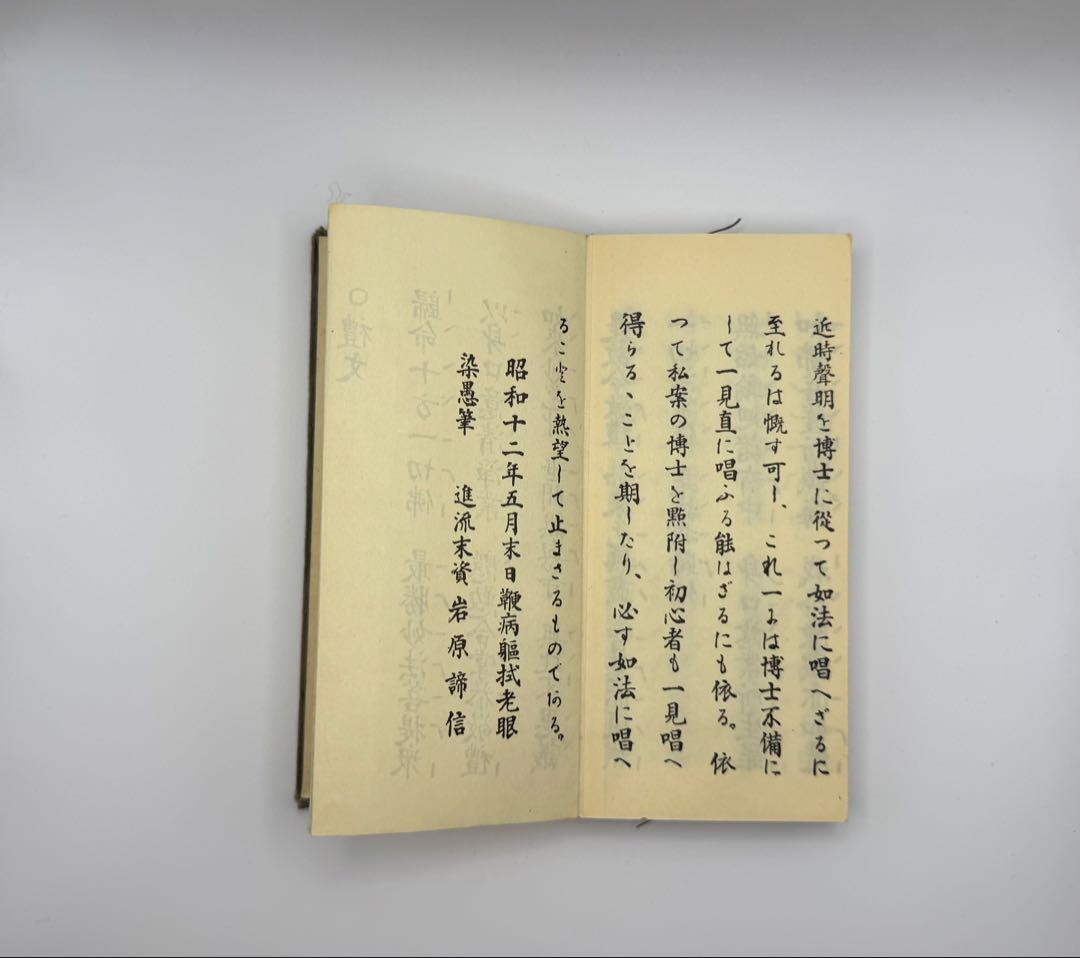 近時聲明を博士に從つて如法に唱へざるに
至れるは慨す可し、これ一には博士不備に
して一見直に唱ふる能はざるにも依る。依
つて私案の博士を㸃附し初心者も一見唱へ
得らる、ことを期したり、必す如法に唱へ
ることを熱望して止まさるものである。
昭和十二年五月末日鞭病軀拭老眼
染愚筆 進流末資岩原諦信
○禮文
歸命十方一切佛 最勝妙法菩提衆
以身口意清淨業